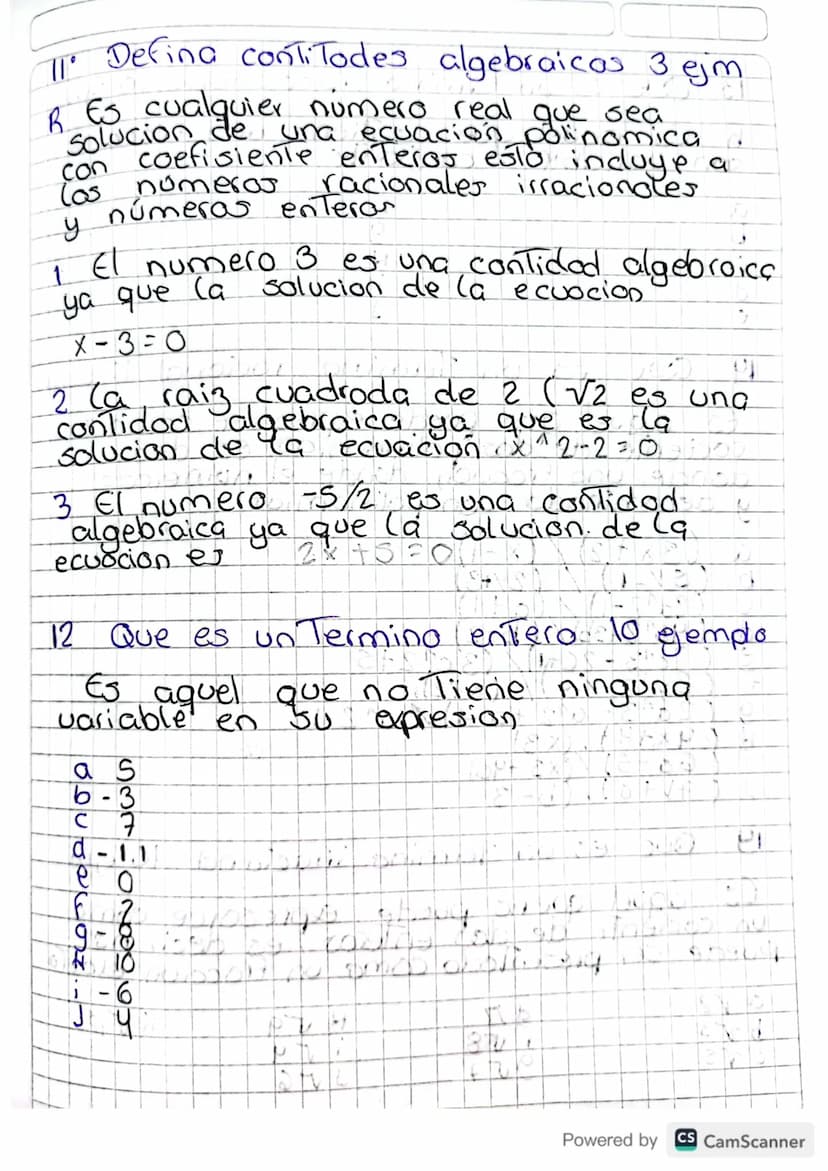 11° Defina cantitades algebraicas 3 ejm
R Es cualquier número real que sea
solucion de una ecuación polinomica
con coefisiente enteros esto incluye a
los números racionales irracionales
y números enteros
1 El numero 3 es una cantidad algebraica
ya que la solucion de la ecuacion
x - 3 = 0
2 la raiz cuadrada de 2 (√2 es una
cantidad algebraica ya que es la
solucion de la ecuación x^2-2=0
3 El numero -5/2 es una cantidad
algebraica ya que la solucion de la
ecuacion es 2x + 5 = 0
12 Que es un Termino entero 10 ejemplo
Es aquel que no Tiene ninguna
variable en su expresion
a 5
b - 3
c 7
d - 1.1
e 0
f 2
g - 8
10
i - 6
J 4
Powered by CS CamScanner